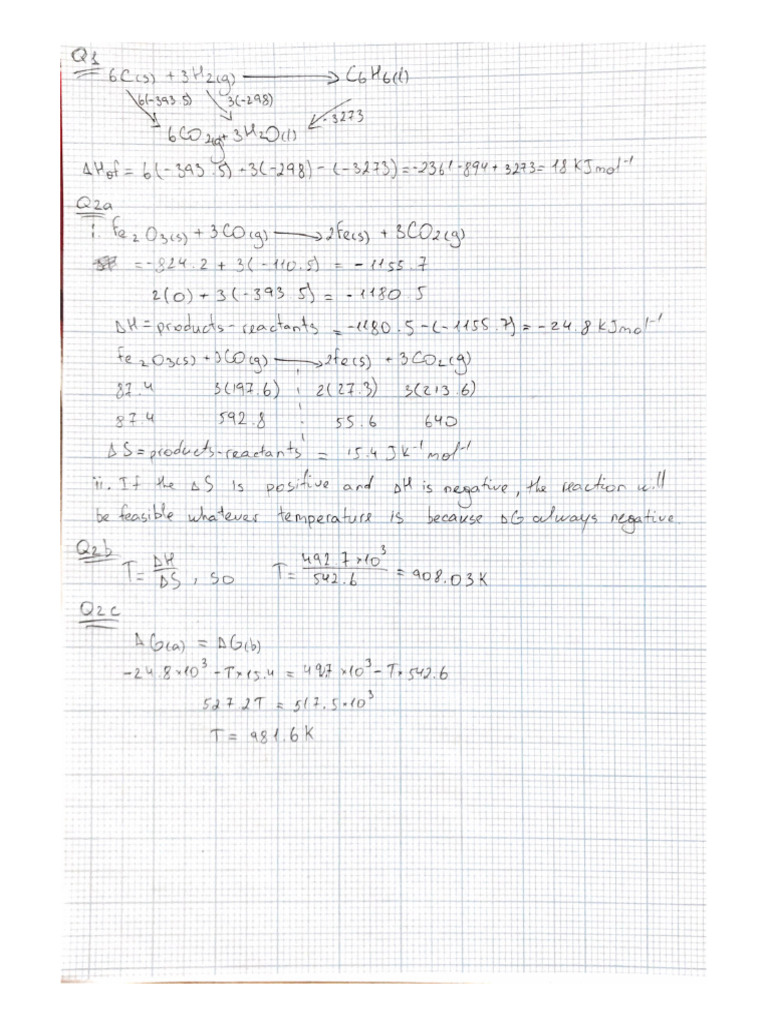 Q1
6C(s) + 3H2(g) ⟶ C6H6(l)
6(-393.5) 3(-298) -3273
6CO2(g) + 3H2O(l)
ΔHof = 6(-393.5) + 3(-298) - (-3273) = -2361 - 894 + 3273 = 18 KJmol⁻¹
Q2a
i. Fe2O3(s) + 3CO(g) ⟶ 2Fe(s) + 3CO2(g)
= -824.2 + 3(-110.5) = -1155.7
2(0) + 3(-393.5) = -1180.5
ΔH = products - reactants = -1180.5 - (-1155.7) = -24.8 kJmol⁻¹
Fe2O3(s) + 3CO(g) ⟶ 2Fe(s) + 3CO2(g)
87.4 3(197.6) 2(27.3) 3(213.6)
87.4 592.8 55.6 640
ΔS = products - reactants = 15.4 JK⁻¹mol⁻¹
ii. If the ΔS is positive and ΔH is negative, the reaction will
be feasible whatever temperature is because ΔG always negative.
Q2b
T = ΔH/ΔS, so T = 492.7×10³/542.6 = 908.03K
Q2c
ΔG(a) = ΔG(b)
-24.8×10³ - T×15.4 = 492.7×10³ - T×542.6
527.2T = 517.5×10³
T = 981.6K